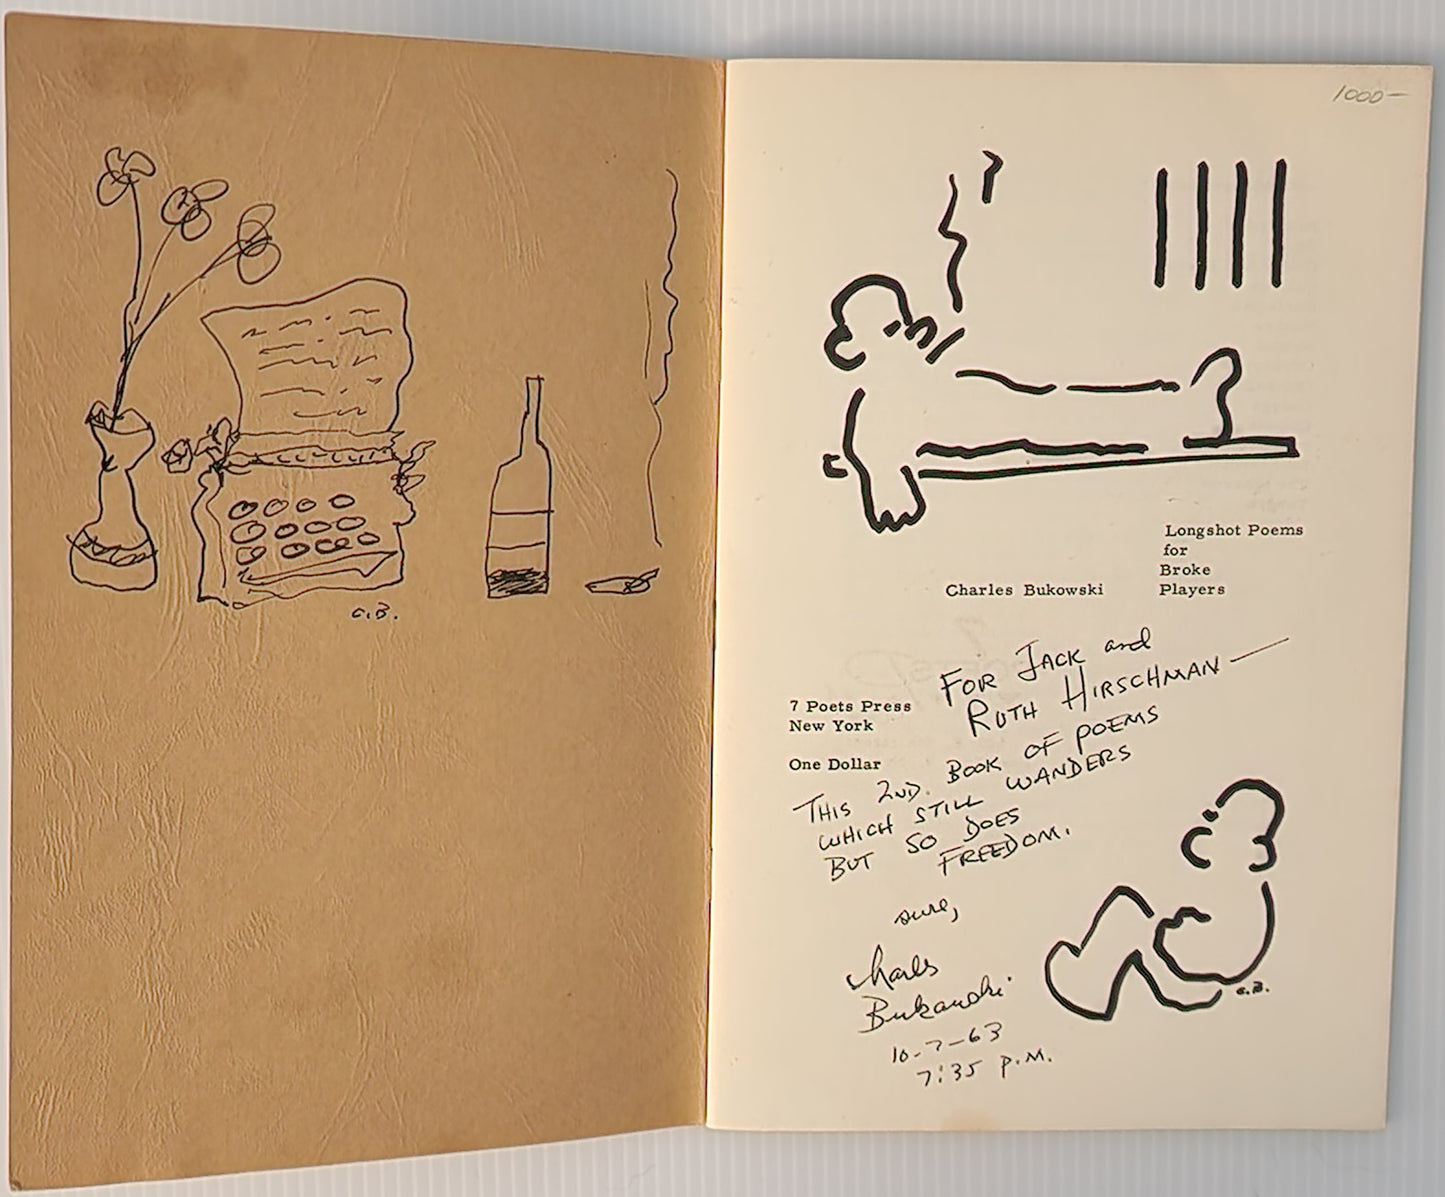 C.B.
1000-
Longshot Poems
for
Broke
Players
Charles Bukowski
7 Poets Press
New York
One Dollar
FOR JACK and
RUTH HIRSCHMAN —
THIS 2ND. BOOK OF POEMS
WHICH STILL WANDERS
BUT SO DOES
FREEDOM.
sure,
Charles
Bukowski
10-7-63
7:35 P.M.
C.B.